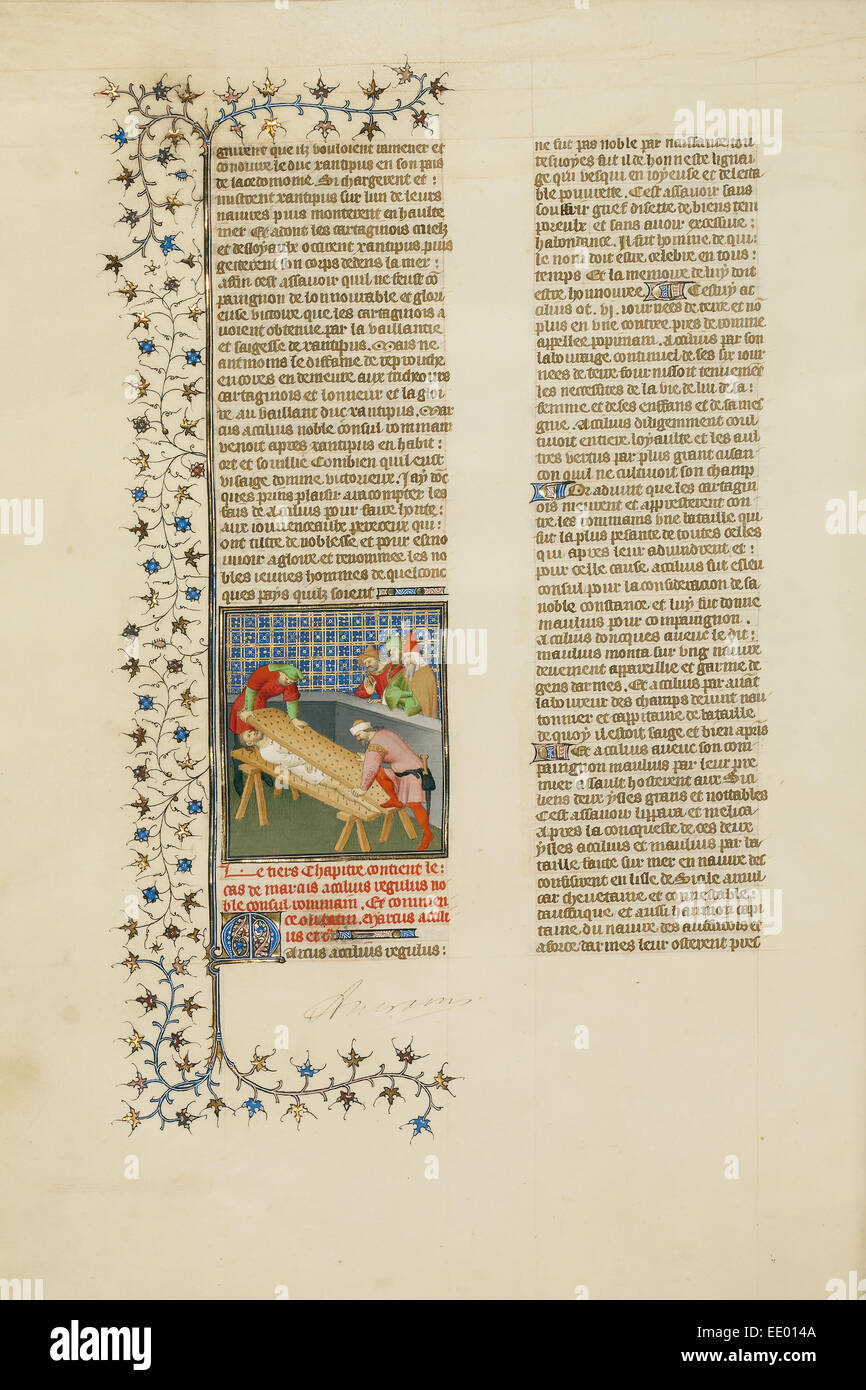 griurent que ilz vouloient ramener et
conduire le duc xantipus en son pais
de lacedomone. Si chargerent et :
mistrent xantipus sur lun de leurs
navires puis monterent en haulte
mer Et adont les cartaginois cruelz
et desloyaulx occirent xantipus puis
getterent son corps dedens la mer :
affin cest assavoir quil ne feust cō
paignon de lonnourable et glori
euse victoire que les cartaginois a
voient obtenue par la vaillance
et saigesse de xantipus. Mais ne
antmoins le diffame de reprouche
encores en demeure aux tricheurs
cartaginois et lonneur et la gloi
re au vaillant duc xantipus. Mar
cus acilius noble consul rommain
venoit apres xantipus en habit :
ort et souillie Combien quil eust
visaige domme victorieux. Jay doc
ques prins plaisir a racompter les
fais de acilius pour faire honte :
aux iouvenceaulx pereceux qui :
ont tiltre de noblesse et pour esmo
uuoir a gloire et renommee les no
bles ieunes hommes de quelconc
ques pays quilz soient
Le tiers Chapitre contient le :
cas de marcus acilius regulus no
ble consul rommain. Et commen
ce ou latin. Marcus acili
us et cr̄
Marcus acilius regulus :
ne fut pas noble par naissance tou
tesvoyes fut il de honneste lignai
ge qui vesqui en ioyeuse et delecta
ble pourete. Cest assavoir sans
souffrir grief disette de biens tem
poreulx et sans avoir excessive :
habondance. Il fut homme de qui :
le nom doit estre celebre en tous :
temps Et la memoire de luy doit
estre honnouree Cestuy ac
cilius ot .vi. iournees de terre et nō
plus en une contree pres de romme
appellee popinam. acilius par son
labouraige continuel de ses six iour
nees de terre fournissoit tenuement
les necessites de la vie de lui de sa :
femme et de ses enffans et de sa mes
gnie. Acilius diligemment coul
tivoit entiere loyaulte et les aul
tres vertus par plus grant cusan
con quil ne cultivoit son champ
Or advint que les cartagin
ois meurent et appresterent con
tre les rommains une bataille qui
fut la plus pesante de toutes celles
qui apres leur advindrent et :
pour celle cause acilius fut esleu
consul pour la consideracion de sa
noble constance et luy fut donne
maulius pour compaignon.
Acilius doncques avecc le dit :
maulius monta sur ung navire
deuement appareillie et garni de
gens darmes. Et acilius par avāt
laboureur des champs devint nau
tonnier et cappitaine de bataille
de quoy il estoit saige et bien apris
Et acilius avecc son com
paingnon maulius par leur pre
mier assault hosterent aux Sici
liens deux ysles grans et nottables
Cest assavoir lippara et melica
Apres la conqueste de ces deux
ysles acilius et maulius par ba
taille faicte sur mer en navire des
confirent en lisle de Sicile amil
car chevetaine et connestable
dauffrique et aussi hannon capi
taine du navire des auffricois et
a force darmes leur osterent pres
alamy
alamy
Image ID: EE014A
www.alamy.com